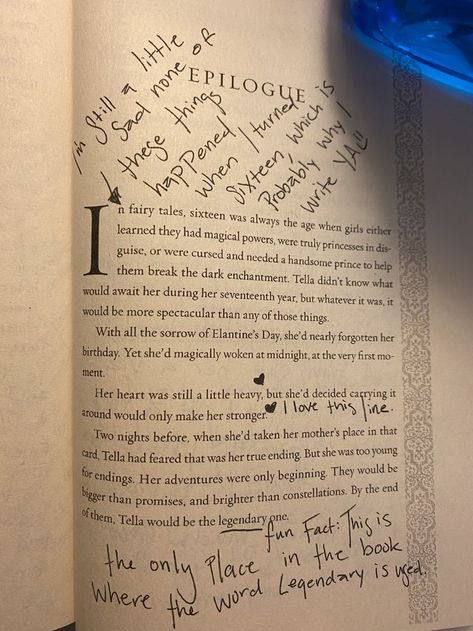 I'm still a little
sad none of
these things
happened
when I turned
sixteen, which is
probably why I
write YA
EPILOGUE
In fairy tales, sixteen was always the age when girls either
learned they had magical powers, were truly princesses in dis-
guise, or were cursed and needed a handsome prince to help
them break the dark enchantment. Tella didn't know what
would await her during her seventeenth year, but whatever it was, it
would be more spectacular than any of those things.
With all the sorrow of Elantine's Day, she'd nearly forgotten her
birthday. Yet she'd magically woken at midnight, at the very first mo-
ment.
Her heart was still a little heavy, but she'd decided carrying it
around would only make her stronger. I love this line.
Two nights before, when she'd taken her mother's place in that
card, Tella had feared that was her true ending. But she was too young
for endings. Her adventures were only beginning. They would be
bigger than promises, and brighter than constellations. By the end
of them, Tella would be the legendary one.
fun Fact: This is
the only Place in the book
where the word Legendary is used.